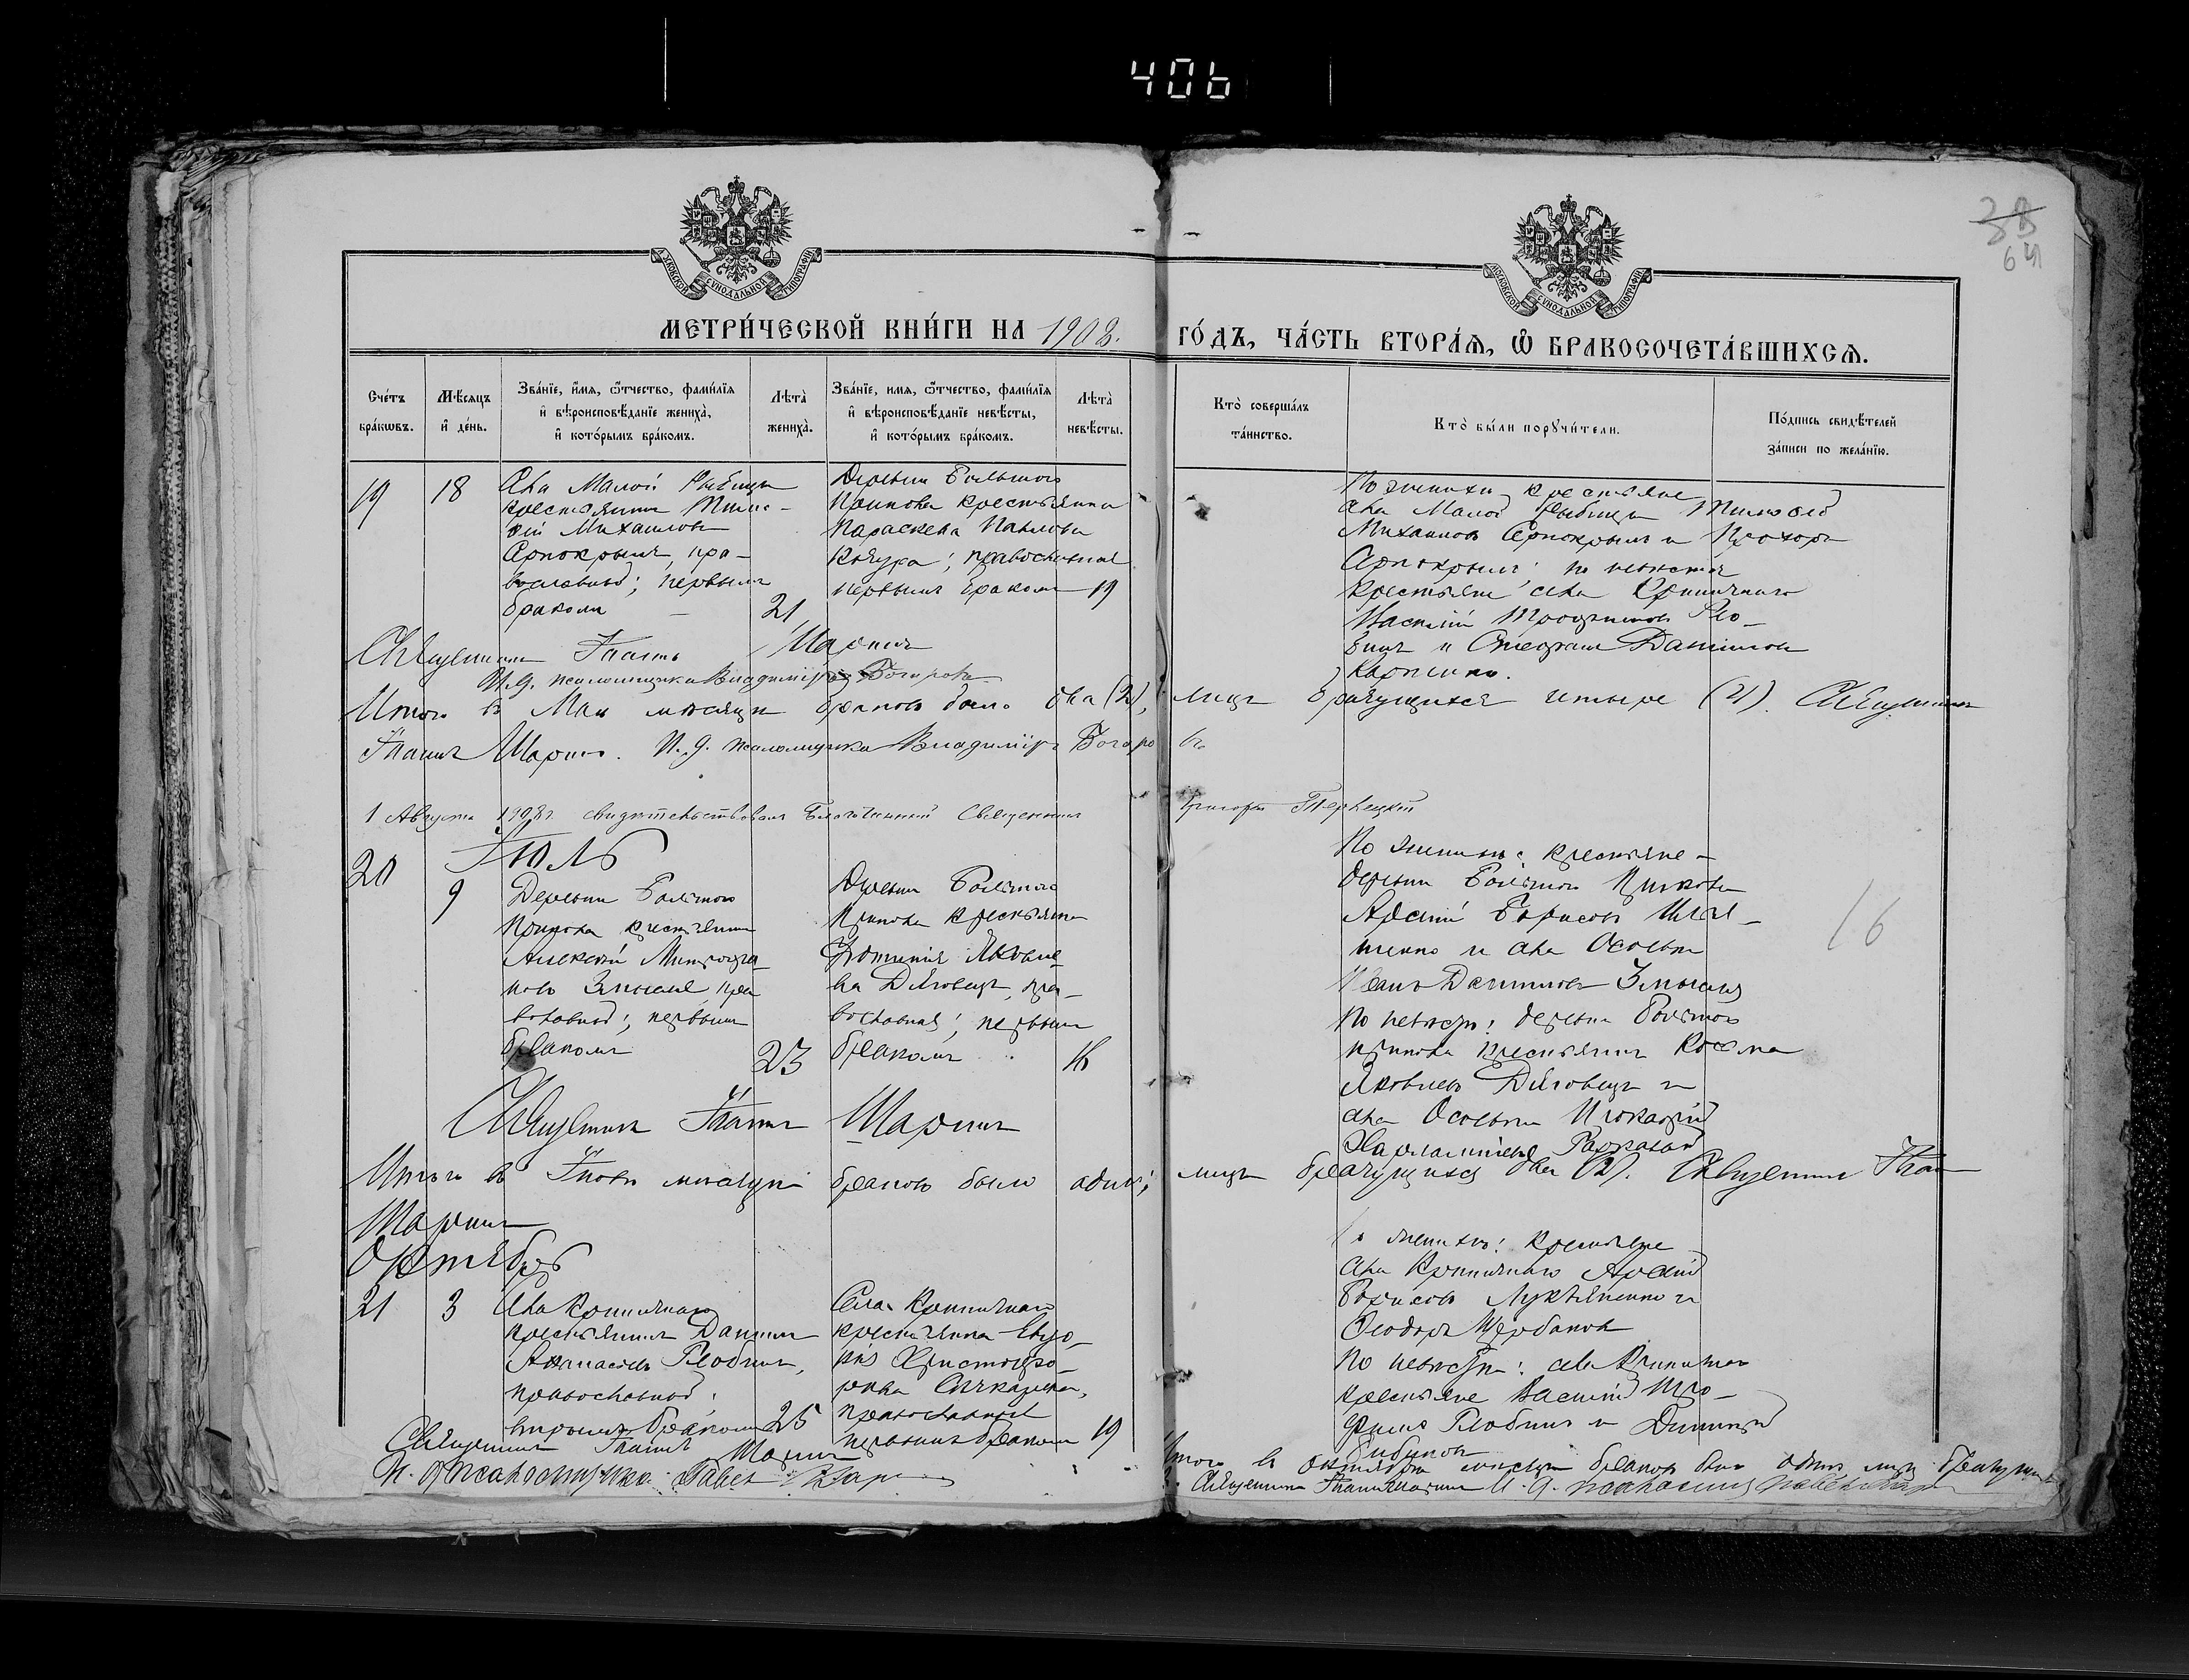 406
38
64
МЕТРИ́ЧЕСКОЙ КНИ́ГИ НА 1908.
ГО́ДЪ, ЧА́СТЬ ВТОРА́Я, Ѡ БРАКОСОЧЕТА́ВШИХСЯ.
Сче́тъ бра́кѡвъ.
Мѣ́сяцъ и҆ де́нь.
Зва́нїе, и҆́мя, ѻ҆́тчество, фами́лїя и҆ вѣроисповѣ́данїе жениха̀, и҆ кото́рымъ бра́комъ.
Лѣта̀ жениха̀.
Зва́нїе, имя, ѻ҆́тчество, фами́лїя и҆ вѣроисповѣ́данїе невѣ́сты, и҆ кото́рымъ бра́комъ.
Лѣта̀ невѣ́сты.
Кто̀ соверша́лъ та́инство.
Кто̀ бы́ли порꙋчи́тели.
По́дпись свидѣ́телей за́писи по жела́нїю.
19
18
Села Малой Рыбицы
крестьянинъ Тимо-
ѳей Михаиловъ
пра-
вославный; первымъ
бракомъ
21
Деревни Большого
Прикола крестьянка
Параскева Павлова
Качура; православная
первымъ бракомъ 19
По женихѣ крестьяне
села Малой Рыбицы Тимоѳей
Михаиловъ и Прохоръ
по невѣстѣ
крестьяне села Криничнаго
Василій Трофимовъ Гло-
бинъ и Стефанъ Даниловъ
Карпенко.
Священникъ Іоаннъ Шаринъ
И. д. псаломщика Владиміръ Богаровъ
Итого въ Маѣ мѣсяцѣ браковъ было два (2), лицъ брачущихся четыре (4). Священникъ
Іоаннъ Шаринъ. И. д. псаломщика Владиміръ Богаровъ
1 Августа 1908 г. свидѣтельствовалъ Благочинный Священникъ Григорій
Іюль
20
9
Деревни Большого
Прикола крестьянинъ
Алексѣй Митрофа-
новъ пра
вославный; первымъ
бракомъ
23
Деревни Большого
Прикола крестьянка
Яковле-
ва пра-
вославная; первымъ
бракомъ
16
По женихѣ: крестьяне
деревни Большого Прикола
Арсеній Борисовъ
и села Осоевки
Иванъ Даниловъ
По невѣстѣ: деревни Большого
Прикола крестьянинъ Косма
Яковлевъ и
села Осоевки
16
Священникъ Іоаннъ Шаринъ
Итого въ Іюлѣ мѣсяцѣ браковъ было одинъ; лицъ брачущихся два (2). Священникъ Іоаннъ
Шаринъ
Октябрь
21
3
Села Криничнаго
крестьянинъ Даниилъ
Аѳанасіевъ Глобинъ,
православный;
вторымъ бракомъ 25
Села Криничнаго
крестьянка Евдо-
кія Христофо-
рова
православная
первымъ бракомъ 19
По женихѣ: крестьяне
села Криничнаго Арсеній
Борисовъ Лукьяненко и
Ѳеодоръ Щербаковъ
По невѣстѣ: села Криничнаго
крестьяне Василій Тро-
фимовъ Глобинъ и Димитрій
Священникъ Іоаннъ Шаринъ
И. д. псаломщика Павелъ
Итого въ октябрѣ мѣсяцѣ браковъ было одинъ лицъ брачущихся
Священникъ Іоаннъ Шаринъ И. д. псаломщ Павелъ